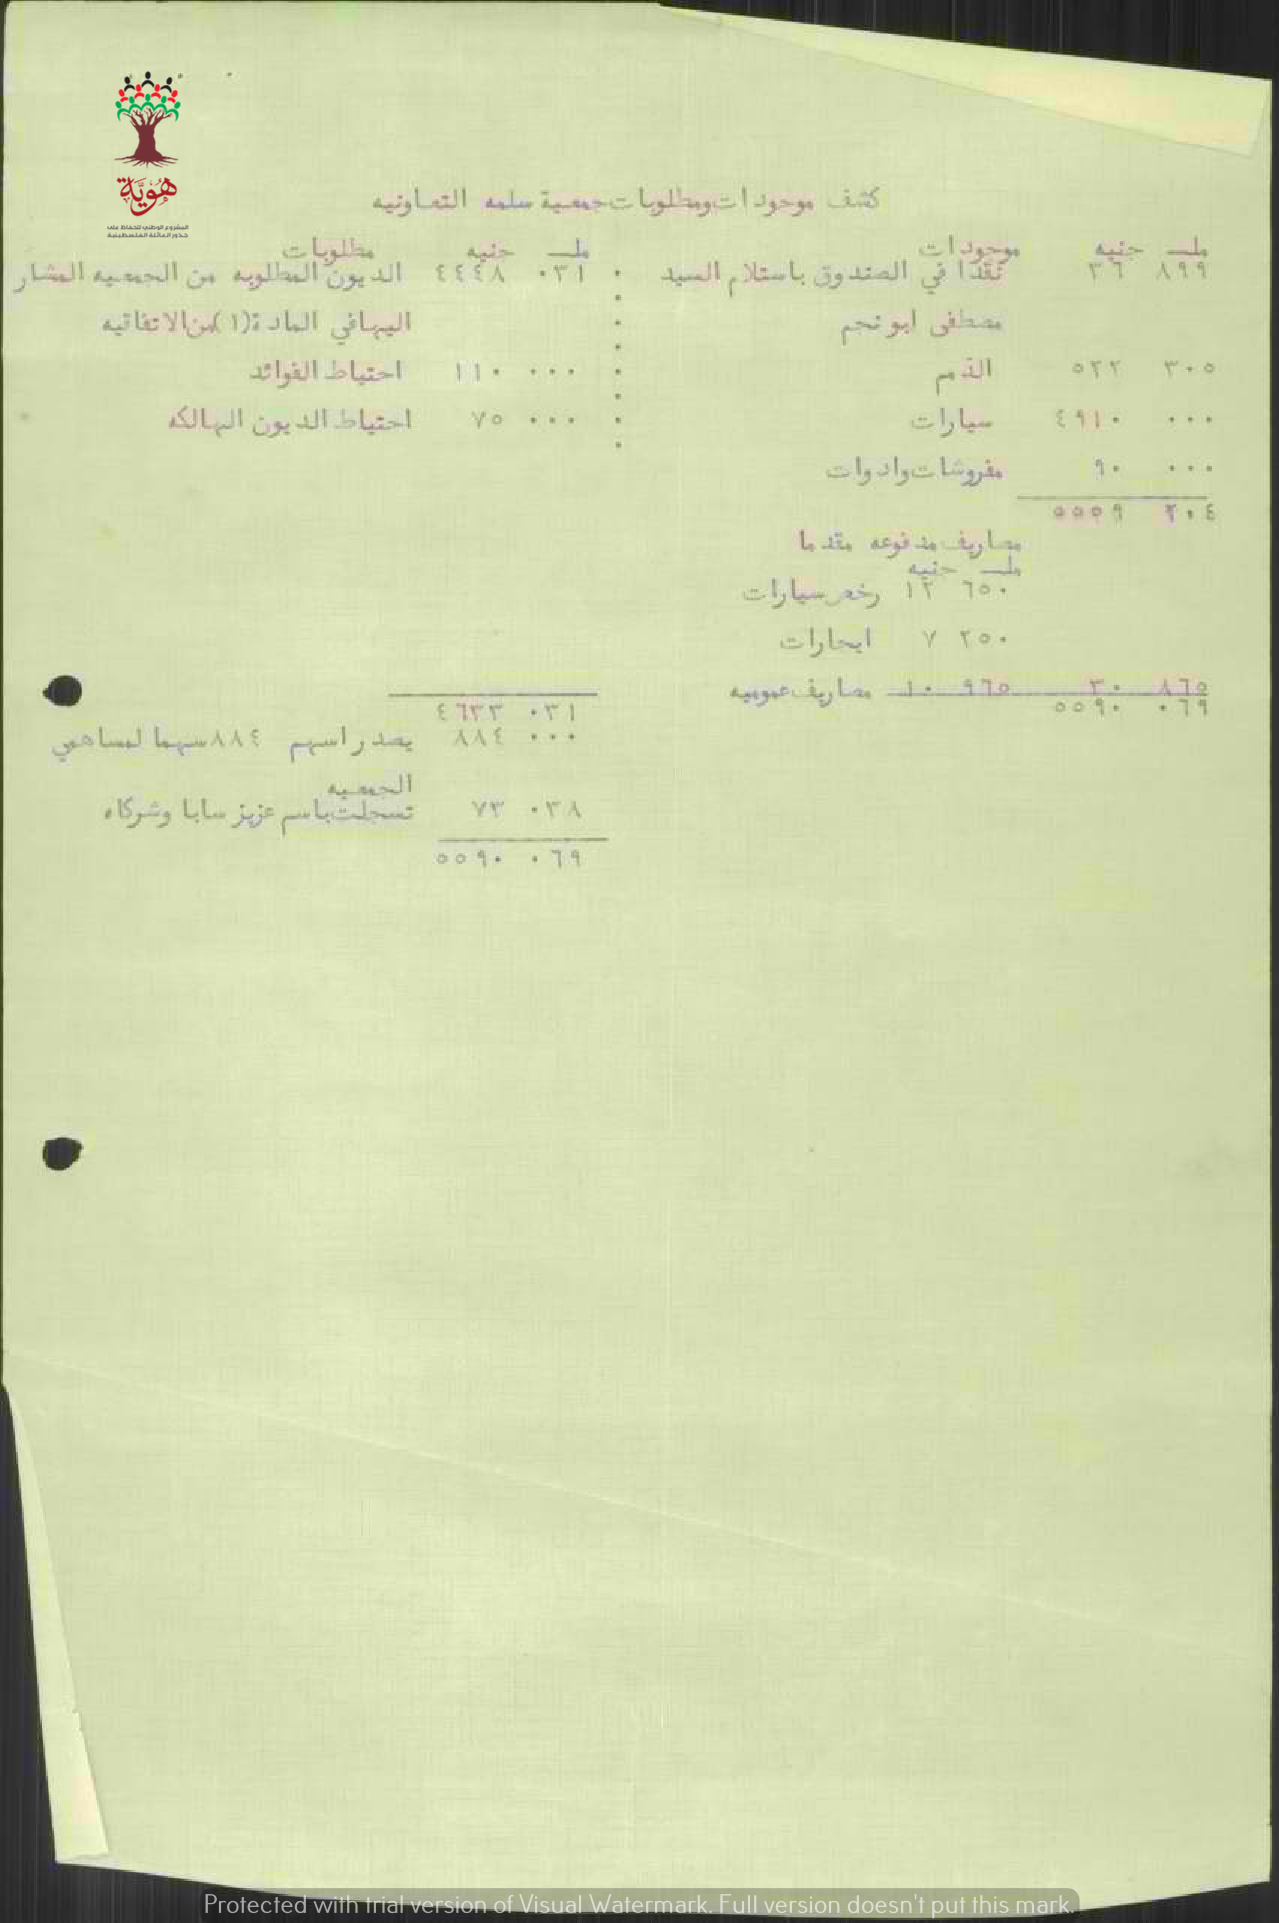 هُوِيَّة
المشروع الوطني للحفاظ على
جذور العائلة الفلسطينية
كشف موجودات ومطلوبات جمعية سلمه التعاونيه
ملـ جنيه موجودات
٨٩٩ ٣٦ نقدا في الصندوق باستلام السيد
مصطفى ابو نجم
٣٠٥ ٥٢٢ الذمم
٠٠٠ ٤٩١٠ سيارات
٠٠٠ ٩٠ مفروشات وادوات
٢٠٤ ٥٥٥٩
مصاريف مدفوعه مقدما
ملـ جنيه
٦٥٠ ١٢ رخص سيارات
٢٥٠ ٧ ايجارات
٨٦٥ ٣٠ ٩٦٥ ١٠ مصاريف عموميه
٠٦٩ ٥٥٩٠
ملـ جنيه مطلوبات
٠٣١ ٤٤٤٨ الديون المطلوبه من الجمعيه المشار
اليها في المادة (١) من الاتفاقيه
٠٠٠ ١١٠ احتياط الفوائد
٠٠٠ ٧٥ احتياط الديون الهالكه
٠٣١ ٤٦٣٣
٠٠٠ ٨٨٤ يصدر اسهم ٨٨٤ سهما لمساهمي
الجمعيه
٠٣٨ ٧٣ تسجلت باسم عزيز سابا وشركاه
٠٦٩ ٥٥٩٠
Protected with trial version of Visual Watermark. Full version doesn't put this mark.